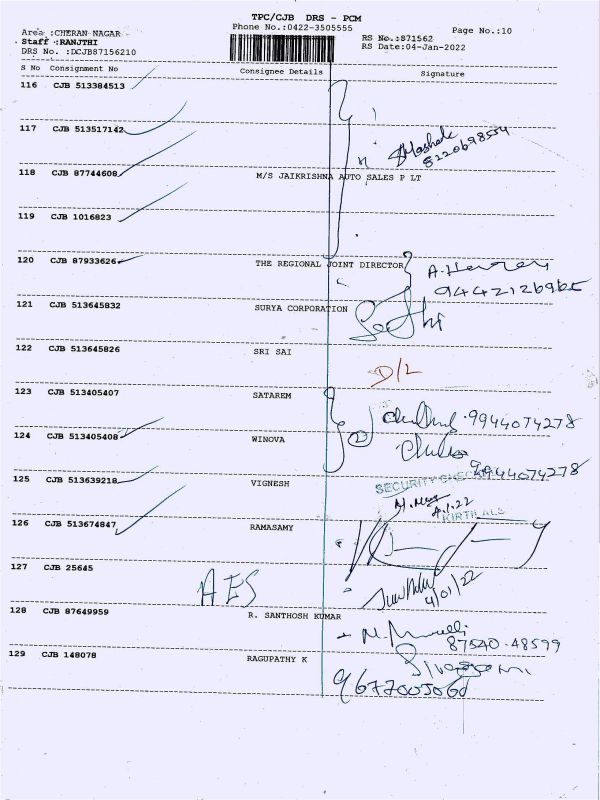 TPC/CJB DRS - PCM
Phone No.:0422-3505555
Page No.:10
Area :CHERAN NAGAR
Staff :RANJTHI
DRS No. :DCJB87156210
RS No.:871562
RS Date:04-Jan-2022
S No Consignment No Consignee Details Signature
116 CJB 513384513
117 CJB 513517142
8220698554
118 CJB 87744608 M/S JAIKRISHNA AUTO SALES P LT
119 CJB 1016823
120 CJB 87933626 THE REGIONAL JOINT DIRECTOR
9442126965
121 CJB 513645832 SURYA CORPORATION
122 CJB 513645826 SRI SAI
D/L
123 CJB 513405407 SATAREM
9944074278
124 CJB 513405408 WINOVA
9944074278
125 CJB 513639218 VIGNESH
SECURITY CHECKED
4.1.22
KIRTILALS
126 CJB 513674847 RAMASAMY
127 CJB 25645
AES
4/01/22
128 CJB 87649959 R. SANTHOSH KUMAR
87540-48599
129 CJB 148078 RAGUPATHY K